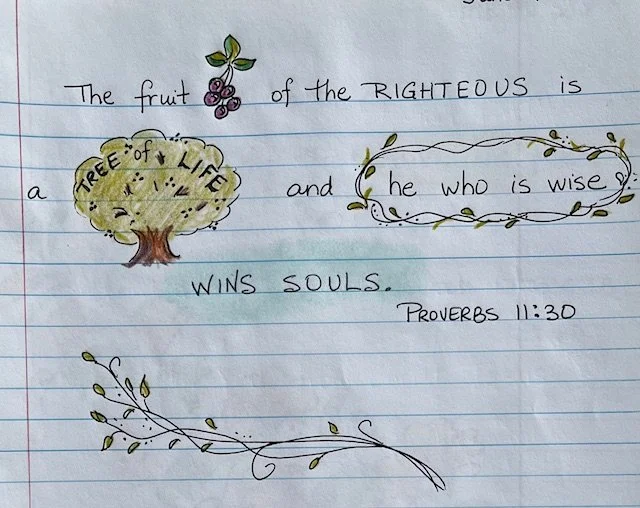 The fruit of the RIGHTEOUS is
a TREE of LIFE and he who is wise
WINS SOULS.
PROVERBS 11:30